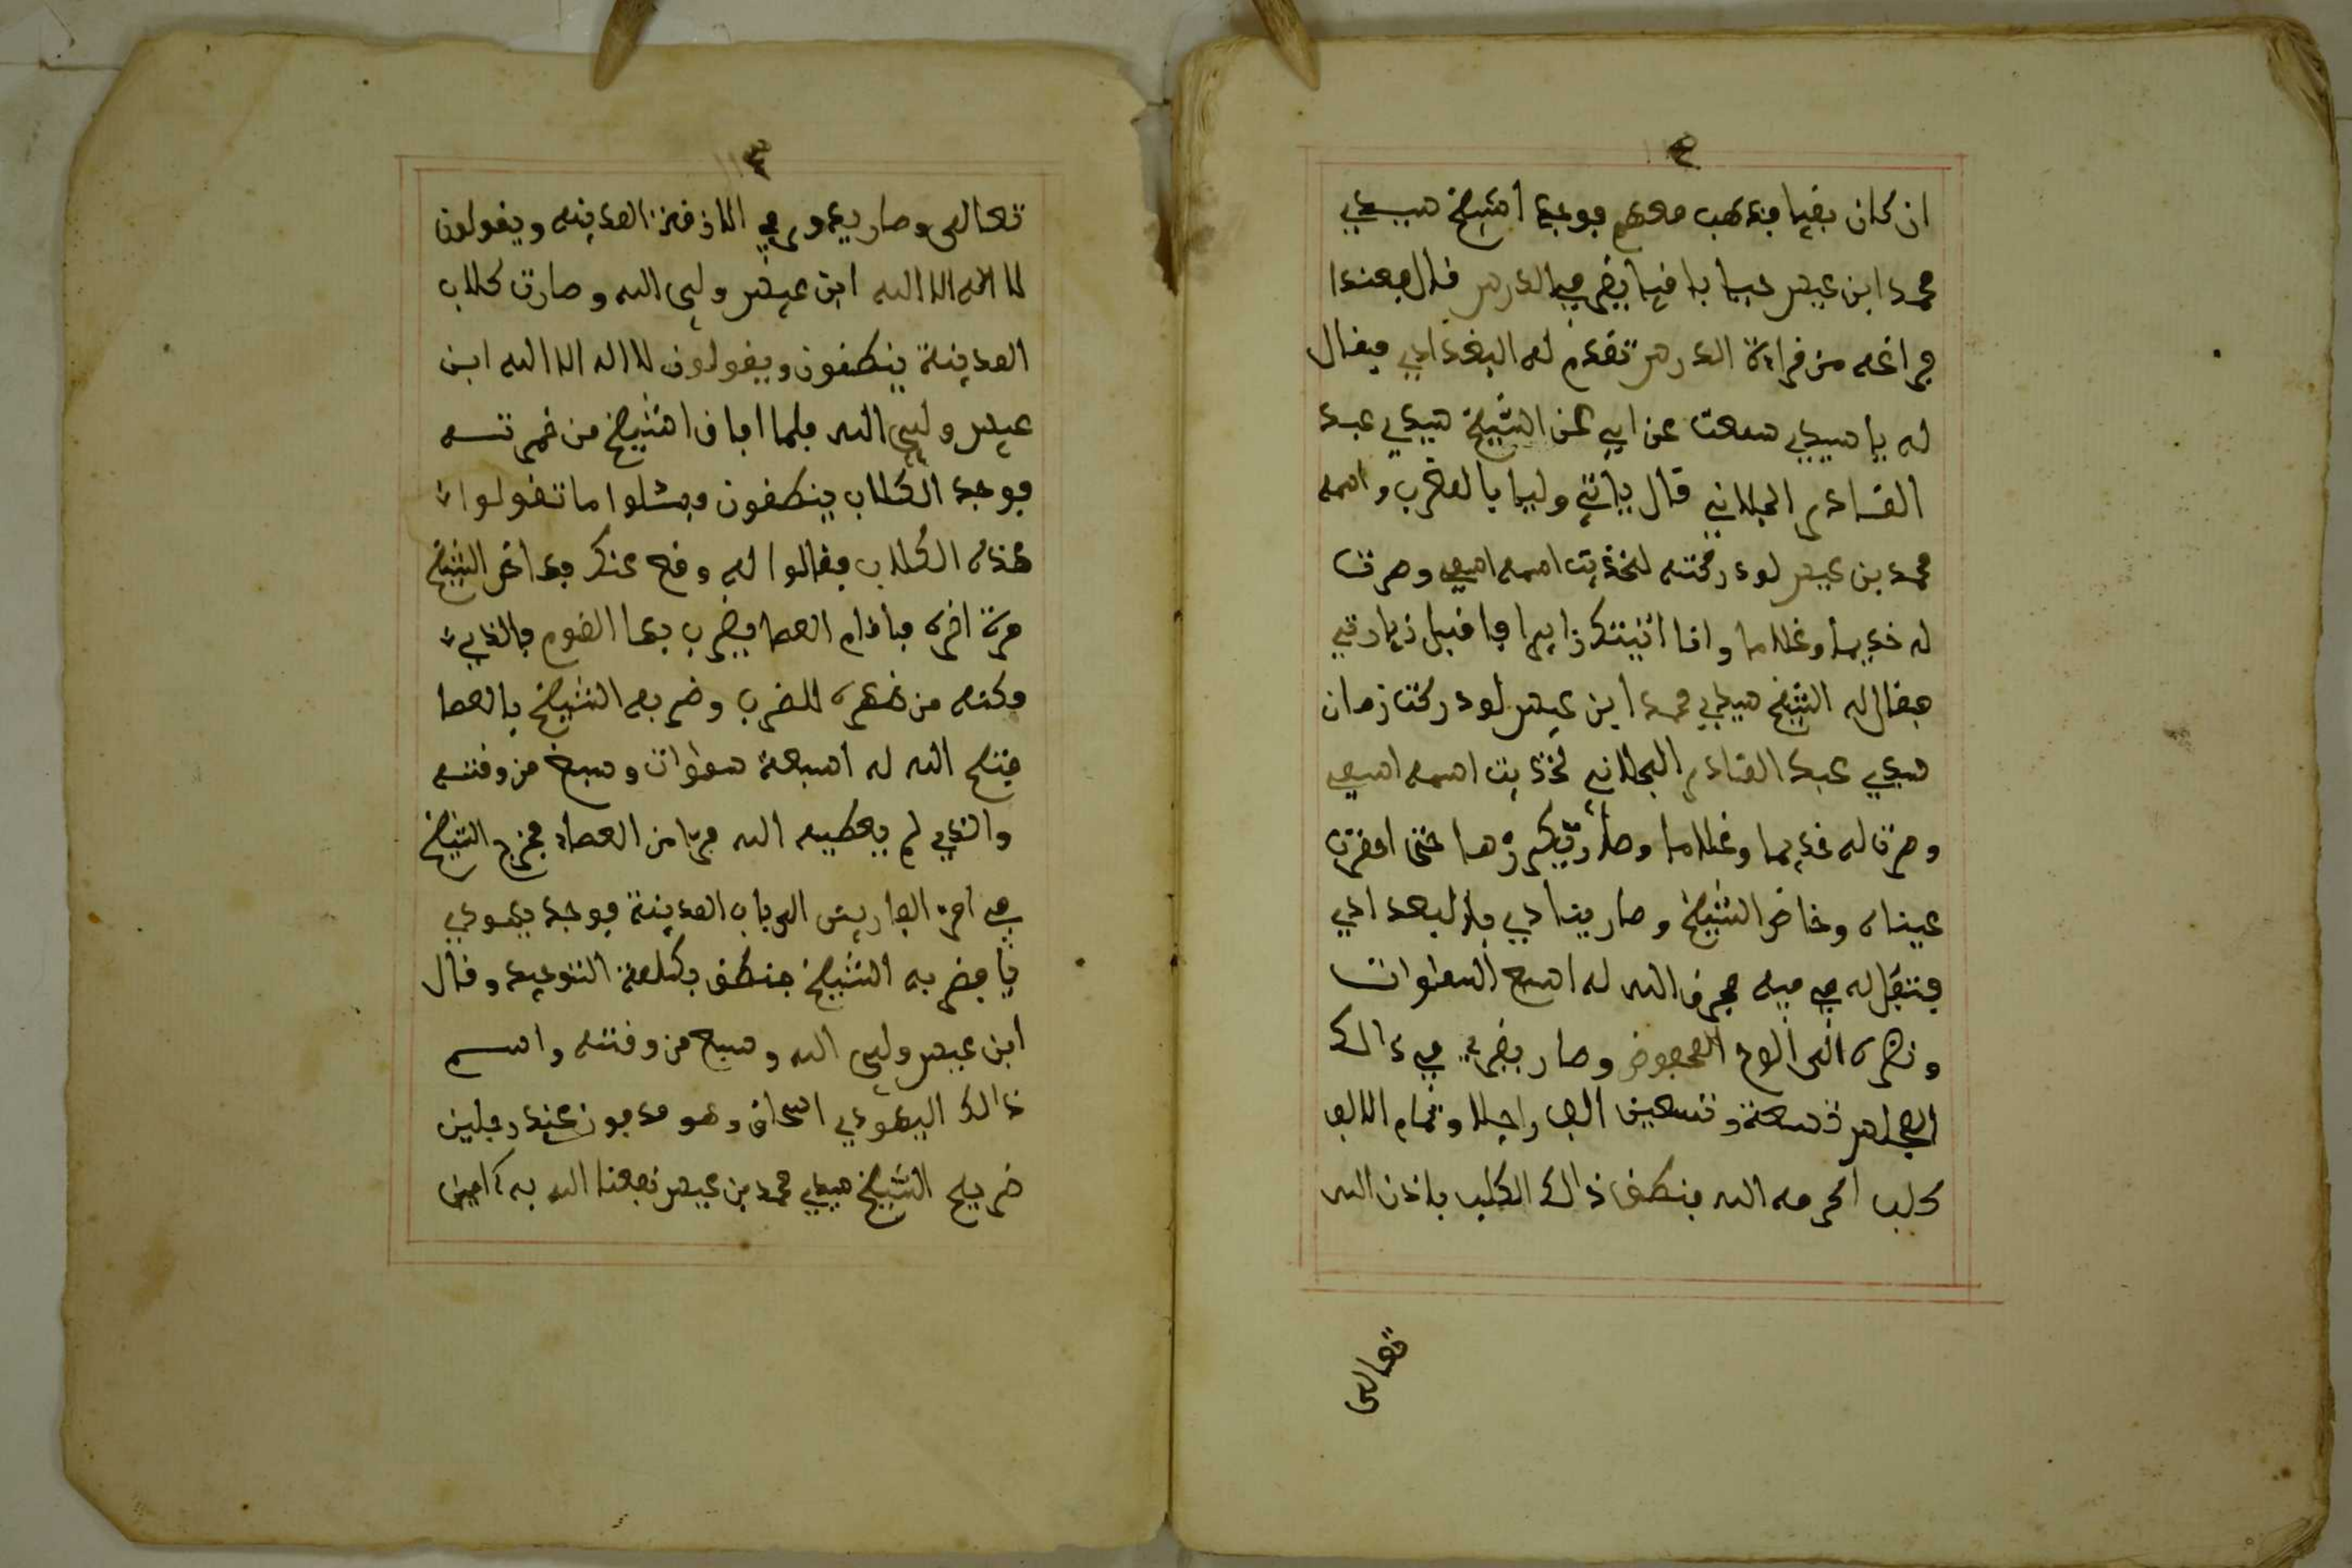 ان كان بفيا فذهب معهم فوجد الشيخ سيدي
محمد ابن عيسى حيا بافيا يفري في الدرس فال فعندا
فراغه من فراية الدرس تفدم له البغدادي ففال
له يا سيدي سمعت عن ابي عن الشيخ سيدي عبد
الفادر الجلاني فال ياتي وليا بالغرب واسمه
محمد بن عيسى لودركته لخذيت اسمه اسمي وصرت
له خديما وغلاما وانا اتيتك زايرا فافبل زيارتي
ففال له الشيخ سيدي محمد ابن عيسى لودركت زمان
سيدي عبد الفادر الجلاني لخذيت اسمه اسمي
وصرت له خديما وغلاما وصار يكررها حتى احمرت
عيناه وخاض الشيخ وصار ينادي بالبغدادي
فتفل له في فيه فخرف الله له اسبع السموات
ونضره الى الوح المحفوض وصار يفري في ذالك
المجلس تسعة وتسعين الف راجلا وتمام الالف
كلب اكرمه الله فنطف ذالك الكلب باذن الله
تعالى
٣
تعالى وصار يدور في الازفة المدينه ويفولون
لا اله الا الله ابن عيسى ولي الله وصارت كلاب
المدينة ينطفون ويفولون لا اله الا الله ابن
عيسى ولي الله فلما افاف الشيخ من خمرتسه
فوجد الكلاب ينطفون فسئلوا ما تفولوا
هذه الكلاب ففالوا له وفع عنك فداخر الشيخ
مرة اخره فافام العصا يضرب بها الفوم فالذي
مكنه من ضهره للضرب وضربه الشيخ بالعصا
فتح الله له اسبعة سموات وسبح من وفته
والذي لم يعطيه الله فرا من العصا فخرج الشيخ
في اثر الهاربين الى باب المدينة فوجد يهودي
يا فضربه الشيخ فنطف بكلمة التوحيد وفال
ابن عيسى ولي الله وسبح من وفته واسم
ذالك اليهودي اسحاف وهو مدفون عند رجلين
ضريح الشيخ سيدي محمد بن عيسى نفعنا الله به ءامين